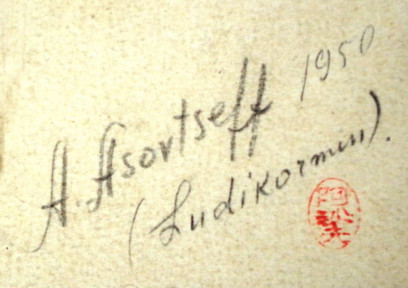 A. Asortseff 1950
(Ludikormin).